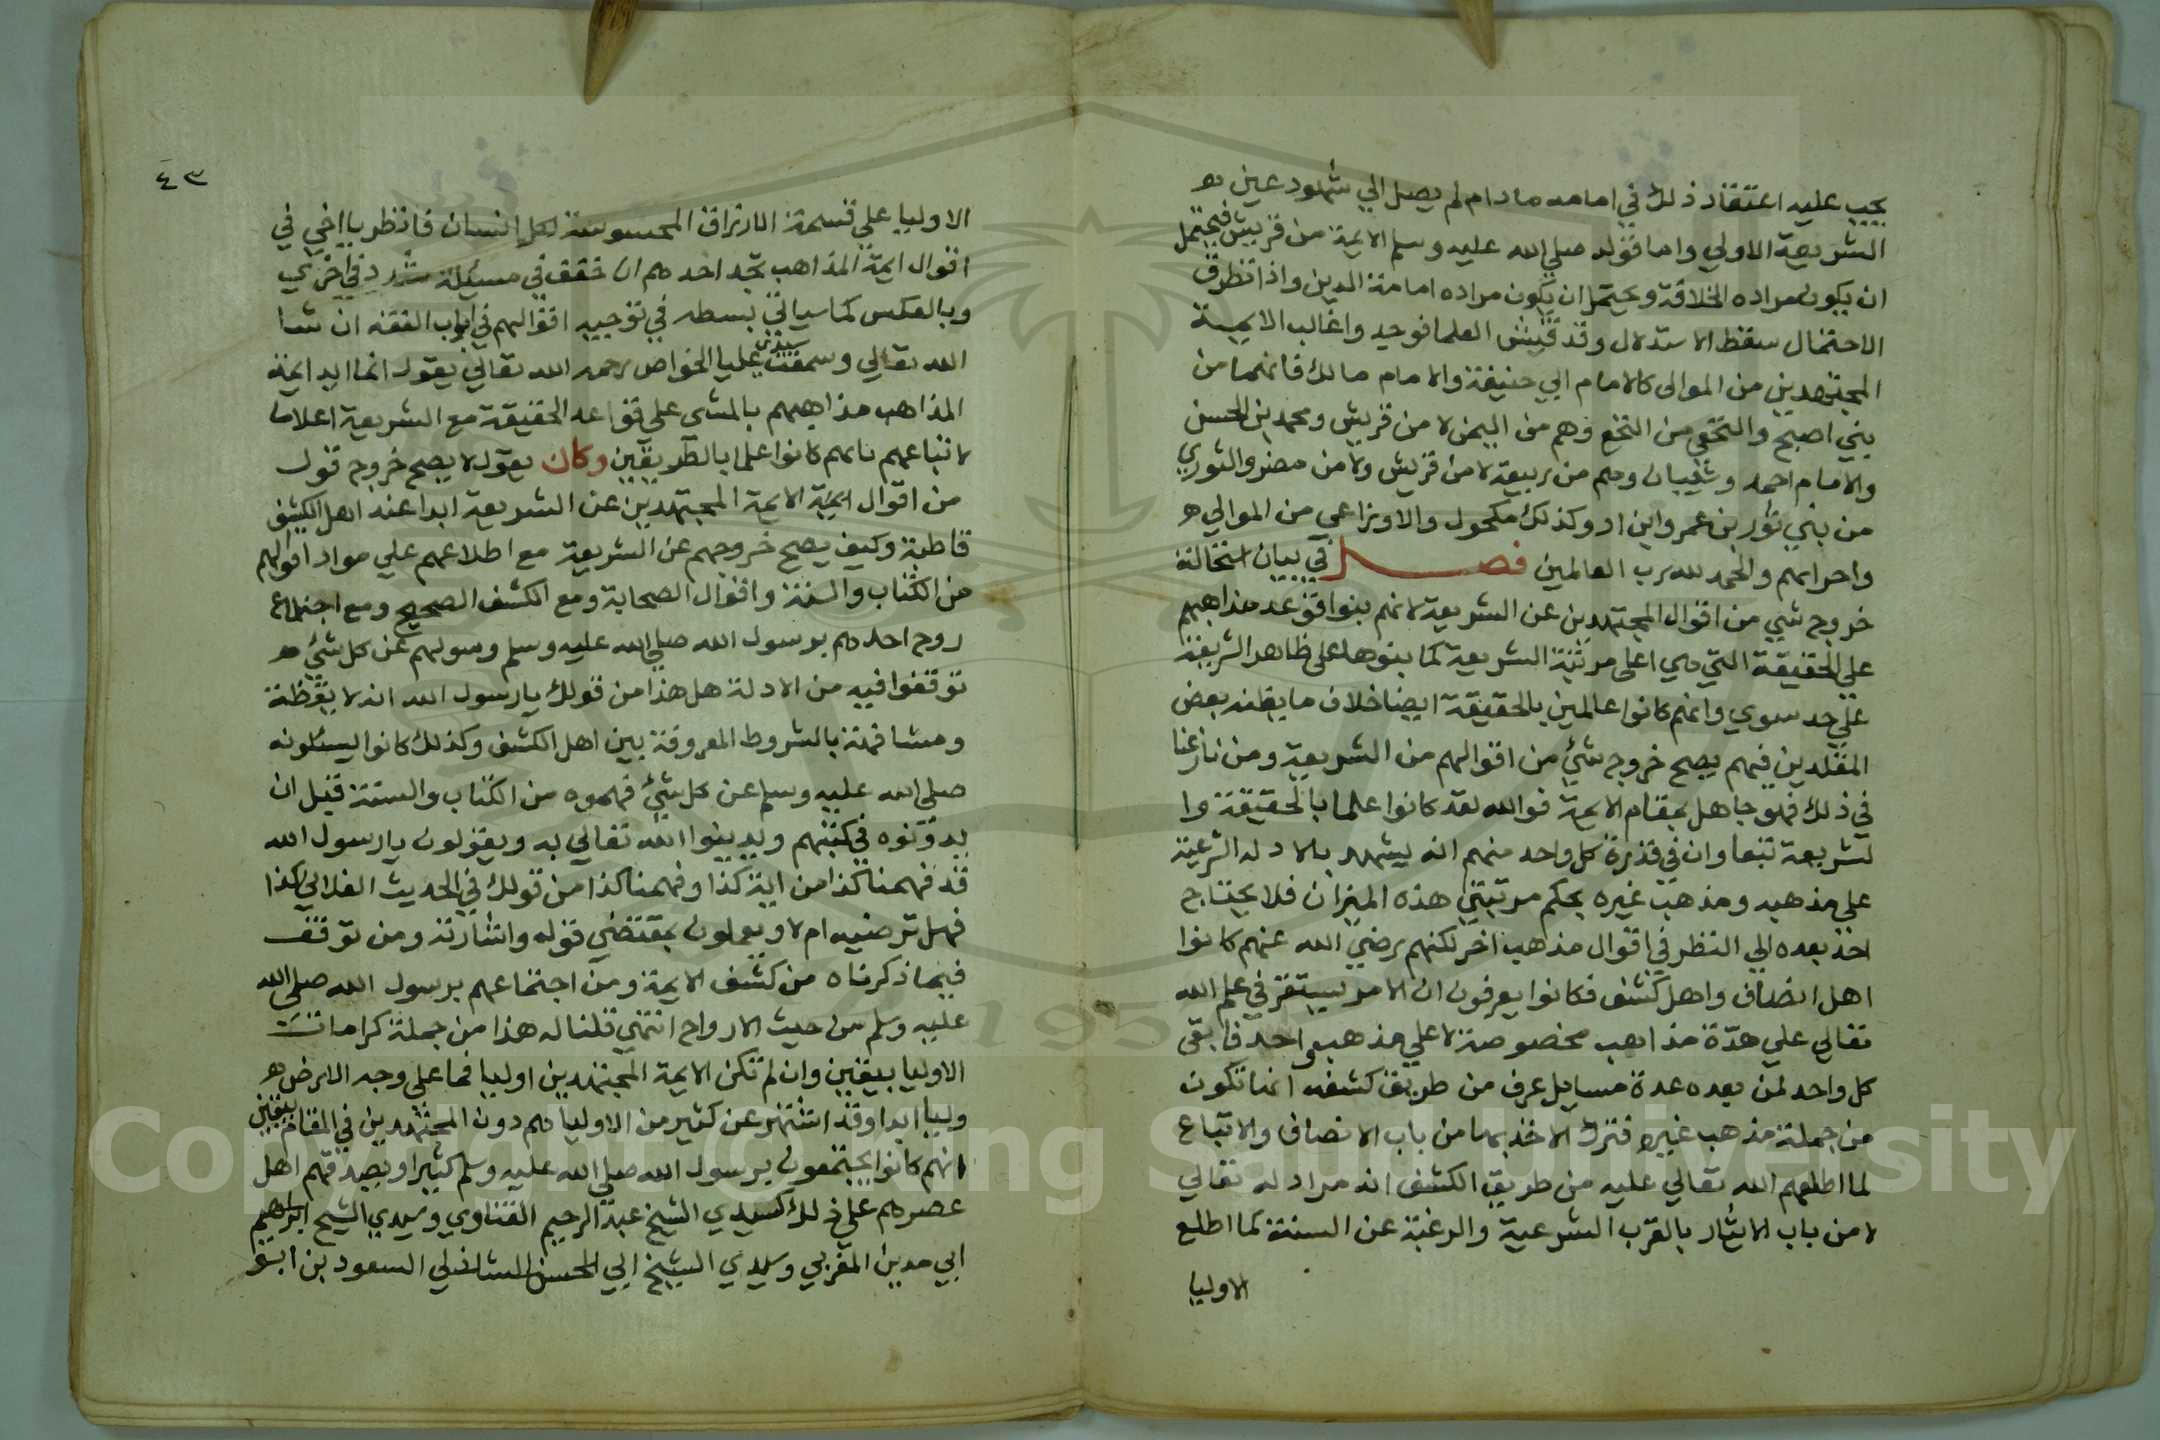 يجب عليه اعتقاد ذلك في امامه ما دام لم يصل الي شهود عين
الشريعة الاولي واما قوله صلي الله عليه وسلم الايمة من قريش فيحتمل
ان يكون مراده الخلافة ويحتمل ان يكون مراده امامة الدين واذا تطرق
الاحتمال سقط الاستدلال وقد فتش العلما فوجدوا غالب الايمة
المجتهدين من الموالى كالامام ابي حنيفة والامام مالك فانهما من
بني اصبح والنخعي من النخع وهم من اليمن لا من قريش ومحمد بن الحسن
والامام احمد وشيبان وهم من ربيعة لا من قريش ولا من مضر والثوري
من بني ثور بن عمر وابن اد وكذلك مكحول والاوزاعي من الموالي
واحرابهم والحمد لله رب العالمين فصل في بيان استحالة
خروج شي من اقوال المجتهدين عن الشريعة لانهم بنوا قواعد مذاهبهم
علي الحقيقة التي هي اعلى مرتبة الشريعة كما بنوها على ظاهر الشريعة
علي حد سوي وانهم كانوا عالمين بالحقيقة ايضا خلاف ما يظنه بعض
المقلدين فيهم يصح خروج شئ من اقوالهم من الشريعة ومن نازعنا
في ذلك فهو جاهل بمقام الايمة فوالله لقد كانوا علما بالحقيقة وا
لشريعة تبعا وان في قدرة كل واحد منهم انه يشهد بالادله الشرعية
علي مذهبه ومذهب غيره بحكم مرتبتي هذه الميزان فلا يحتاج
احد بعده الي النظر في اقوال مذهب اخر لكنهم رضي الله عنهم كانوا
اهل انصاف واهل كشف فكانوا يعرفون ان الامر يستقر في علم الله
تعالي علي هدة مذاهب مخصوصة لا علي مذهب واحد فابقى
كل واحد لمن بعده عدة مسايل عرف من طريق كشفه انها تكون
من جملة مذهب غيره فترك الاخذ بها من باب الانصاف والاتباع
لما اطلعهم الله تعالي عليه من طريق الكشف انه مراد له تعالي
لا من باب الايثار بالقرب الشرعية والرغبة عن السنة كما اطلع
الاوليا
٤٣
الاوليا علي قسمة الارزاق المحسوسة لكل انسان فانظر يا اخي في
اقوال ايمة المذاهب تجد احدهم ان خفف في مسيلة شدد في اخري
وبالعكس كما سياتي بسطه في توجيه اقوالهم في ابواب الفقه ان شا
الله تعالي وسمعت سيدي عليا الخواص رحمه الله تعالي يقول انما ايد ايمة
المذاهب مذاهبهم بالمشى على قواعد الحقيقة مع الشريعة اعلاما
لاتباعهم بانهم كانوا علما بالطريقين وكان يقول لا يصح خروج قول
من اقوال ايمة الايمة المجتهدين عن الشريعة ابدا عند اهل الكشف
قاطبة وكيف يصح خروجهم عن الشريعة مع اطلاعهم علي مواد اقوالهم
من الكتاب والسنة واقوال الصحابة ومع الكشف الصحيح ومع اجتماع
روح احدهم برسول الله صلي الله عليه وسلم وسولهم عن كل شئ
توقفوا فيه من الادلة هل هذا من قولك يا رسول الله ام لا يقظة
ومشافهة بالشروط المعروفة بين اهل الكشف وكذلك كانوا يسئلونه
صلي الله عليه وسلم عن كل شئ فهموه من الكتاب والسنة قبل ان
يدونوه في كتبهم ويدينوا الله تعالي به ويقولون يا رسول الله
قد فهمنا كذا من اية كذا وفهمنا كذا من قولك في الحديث الفلاني كذا
فهل ترضيه ام لا ويعملون بمقتضي قوله واشارته ومن توقف
فيما ذكرناه من كشف الايمة ومن اجتماعهم برسول الله صلي الله
عليه وسلم من حيث الارواح انتهي قلنا له هذا من جملة كرامات
الاوليا بيقين وان لم تكن الايمة المجتهدين اوليا فما علي وجه الارض
وليا ابدا وقد اشتهر عن كثير من الاوليا هم دون المجتهدين في المقام بيقين
انهم كانوا يجتمعون برسول الله صلي الله عليه وسلم كثيرا ويصدقهم اهل
عصرهم علي ذلك كسيدي الشيخ عبد الرحيم القناوي وسيدي الشيخ ابراهيم
ابي مدين المغربي وسيدي الشيخ ابي الحسن الشاذلي السعود بن ابو
Copyright © King Saud University